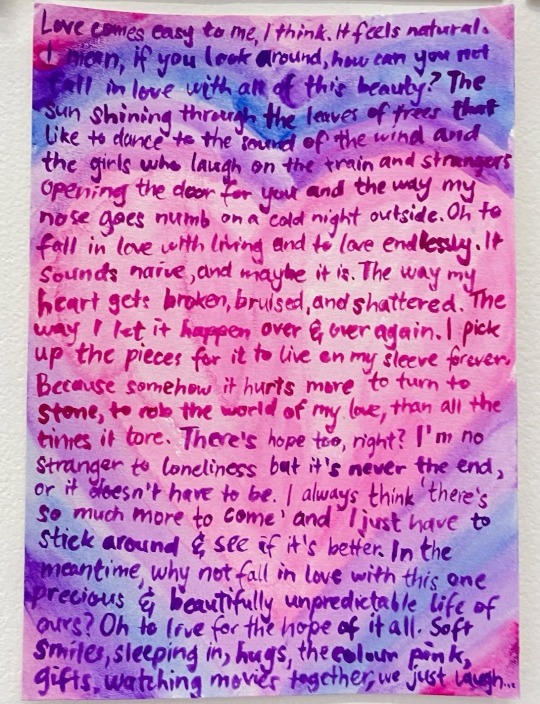 Love comes easy to me, I think. It feels natural.
I mean, if you look around, how can you not
fall in love with all of this beauty? The
sun shining through the leaves of trees that
like to dance to the sound of the wind and
the girls who laugh on the train and strangers
opening the door for you and the way my
nose goes numb on a cold night outside. Oh to
fall in love with living and to love endlessly. It
sounds naive, and maybe it is. The way my
heart gets broken, bruised, and shattered. The
way I let it happen over & over again. I pick
up the pieces for it to live on my sleeve forever.
Because somehow it hurts more to turn to
stone, to rob the world of my love, than all the
times it tore. There's hope too, right? I'm no
stranger to loneliness but it's never the end,
or it doesn't have to be. I always think 'there's
so much more to come' and I just have to
stick around & see if it's better. In the
meantime, why not fall in love with this one
precious & beautifully unpredictable life of
ours? Oh to live for the hope of it all. Soft
smiles, sleeping in, hugs, the colour pink,
gifts, watching movies together, we just laugh...